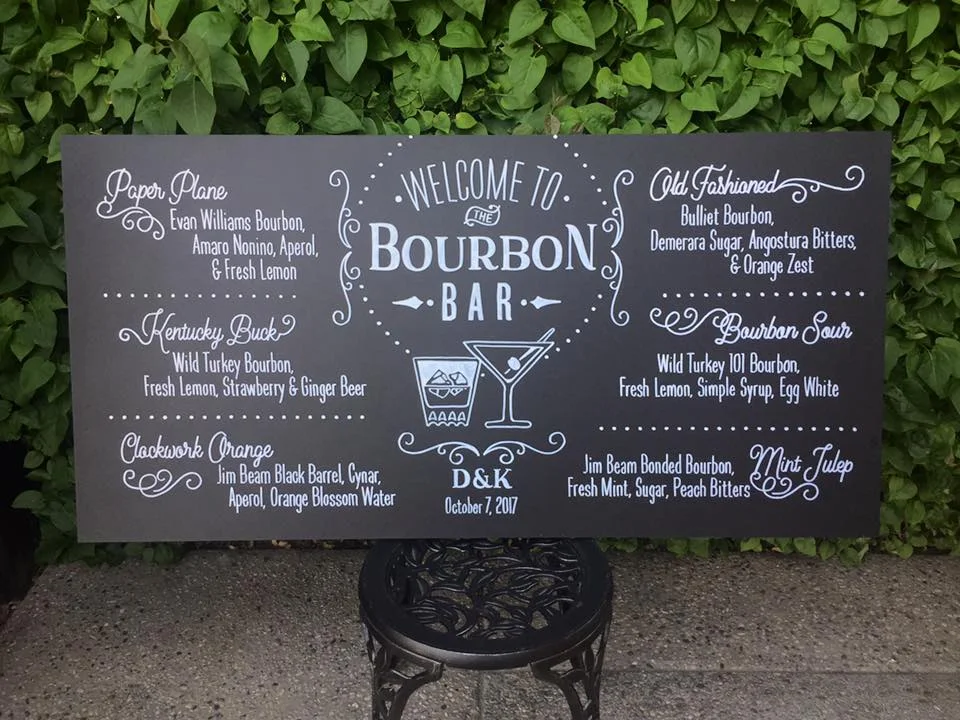 WELCOME TO
THE
BOURBON
BAR
Paper Plane
Evan Williams Bourbon,
Amaro Nonino, Aperol,
& Fresh Lemon
Kentucky Buck
Wild Turkey Bourbon,
Fresh Lemon, Strawberry & Ginger Beer
Clockwork Orange
Jim Beam Black Barrel, Cynar,
Aperol, Orange Blossom Water
D&K
October 7, 2017
Old Fashioned
Bulliet Bourbon,
Demerara Sugar, Angostura Bitters,
& Orange Zest
Bourbon Sour
Wild Turkey 101 Bourbon,
Fresh Lemon, Simple Syrup, Egg White
Mint Julep
Jim Beam Bonded Bourbon,
Fresh Mint, Sugar, Peach Bitters